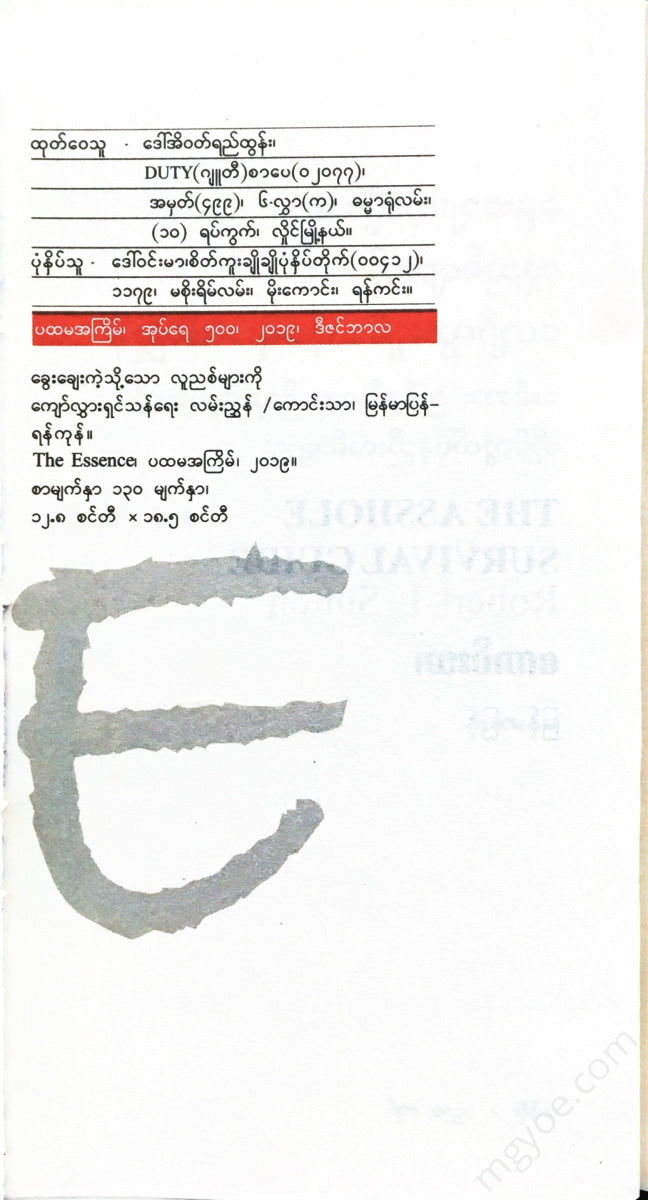 ထုတ်ဝေသူ - ဒေါ်အိဝတ်ရည်ထွန်း၊
DUTY(ဂျူတီ)စာပေ(၀၂၀၇၇)၊
အမှတ်(၄၉၉)၊ ၆-လွှာ(က)၊ ဓမ္မာရုံလမ်း၊
(၁၀) ရပ်ကွက်၊ လှိုင်မြို့နယ်။
ပုံနှိပ်သူ - ဒေါ်ဝင်းမာ၊စိတ်ကူးချိုချိုပုံနှိပ်တိုက်(၀၀၄၁၂)၊
၁၁၇၉၊ မစိုးရိမ်လမ်း၊ မိုးကောင်း၊ ရန်ကင်း။
ပထမအကြိမ်၊ အုပ်ရေ ၅၀၀၊ ၂၀၁၉၊ ဒီဇင်ဘာလ
ခွေးချေးကဲ့သို့သော လူညစ်များကို
ကျော်လွှားရှင်သန်ရေး လမ်းညွှန် /ကောင်းသာ၊ မြန်မာပြန်–
ရန်ကုန်။
The Essence၊ ပထမအကြိမ်၊ ၂၀၁၉။
စာမျက်နှာ ၁၃၀ မျက်နှာ၊
၁၂.၈ စင်တီ × ၁၈.၅ စင်တီ
THE ASSHOLE
SURVIVAL GUIDE
Robert I. Sutton
ကောင်းသာ
မြန်မာပြန်
mgyoe.com